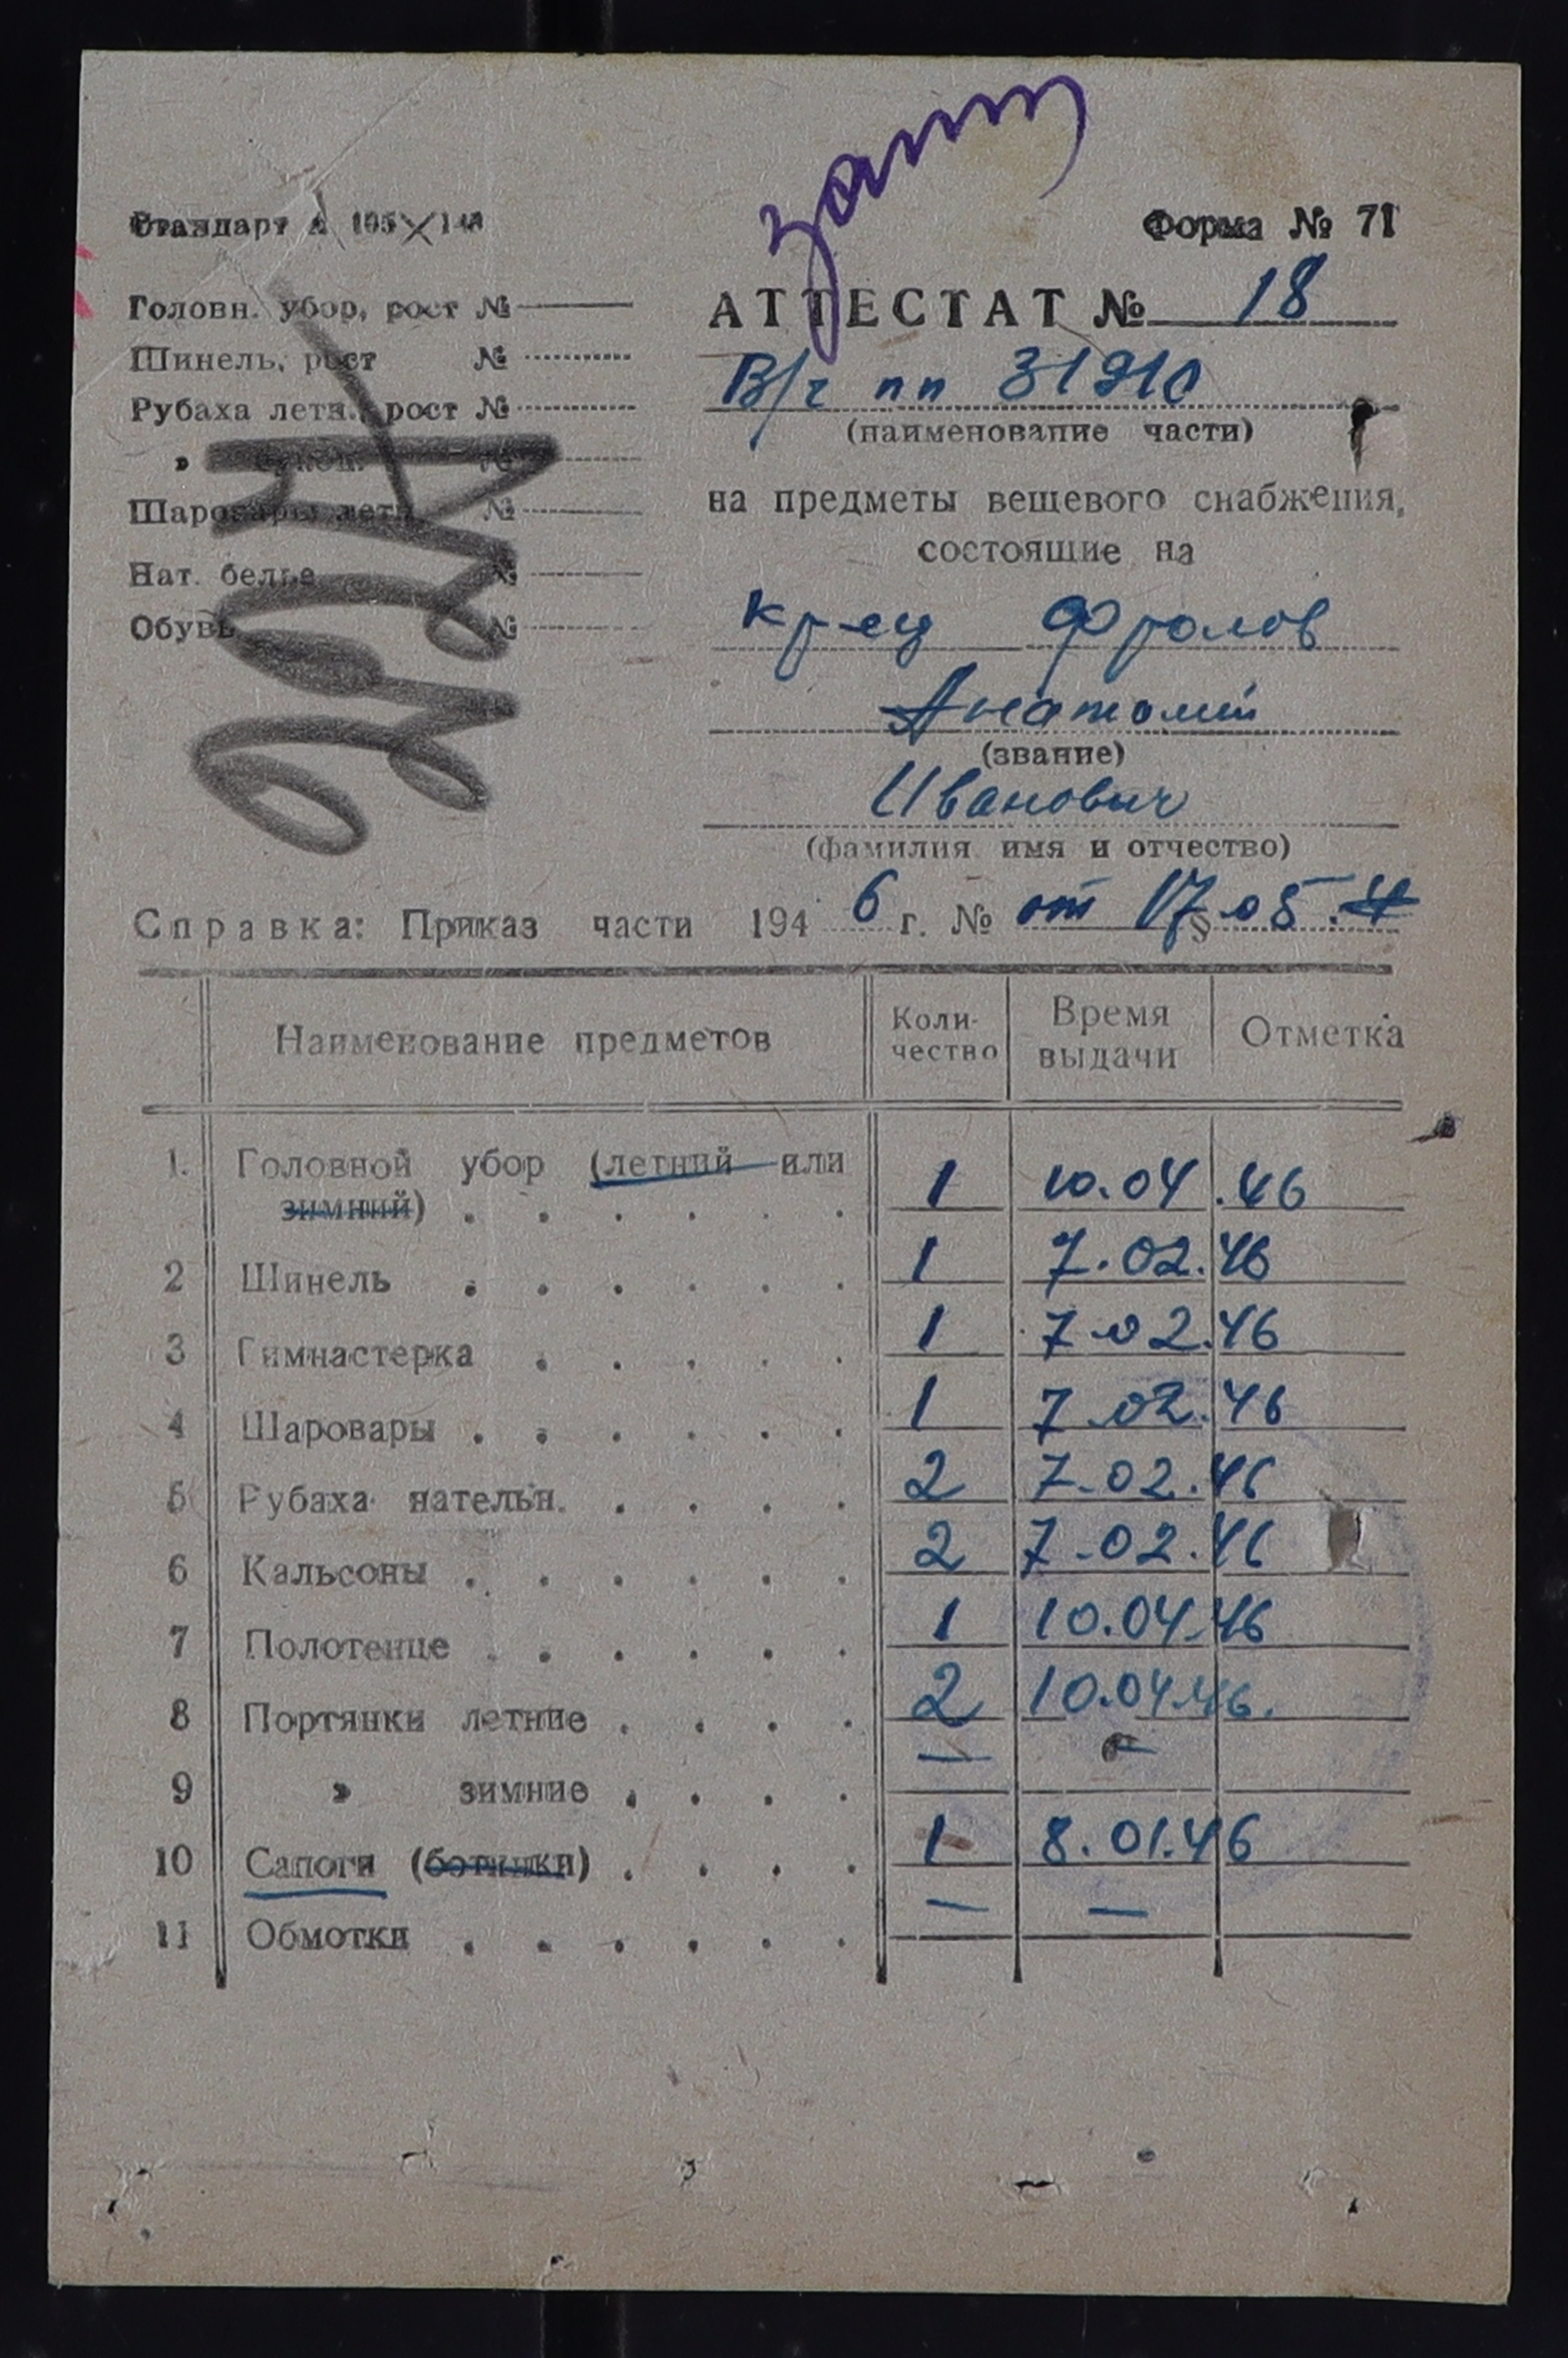 Стандарт А 105×148
Форма № 71
Головн. убор, рост №
Шинель, рост №
Рубаха летн. рост №
» сукон. №
Шаровары летн. №
Нат. белье №
Обувь №
АТТЕСТАТ № 18
В/ч пп 31910
(наименование части)
на предметы вещевого снабжения,
состоящие на
кр-ец Фролов
Анатолий
(звание)
Иванович
(фамилия имя и отчество)
Справка: Приказ части 1946 г. № от 17 § .05.
Наименование предметов Коли-чество Время выдачи Отметка
1. Головной убор (летний или
зимний) . . . . . . 1 10.04.46
2 Шинель . . . . . . 1 7.02.46
3 Гимнастерка . . . . . 1 7.02.46
4 Шаровары . . . . . . 1 7.02.46
5 Рубаха нательн. . . . . 2 7.02.46
6 Кальсоны . . . . . . 2 7.02.46
7 Полотенце . . . . . . 1 10.04.46
8 Портянки летние . . . . 2 10.04.46.
9 » зимние . . . . — —
10 Сапоги (ботинки) . . . . 1 8.01.46
11 Обмотки . . . . . . — —